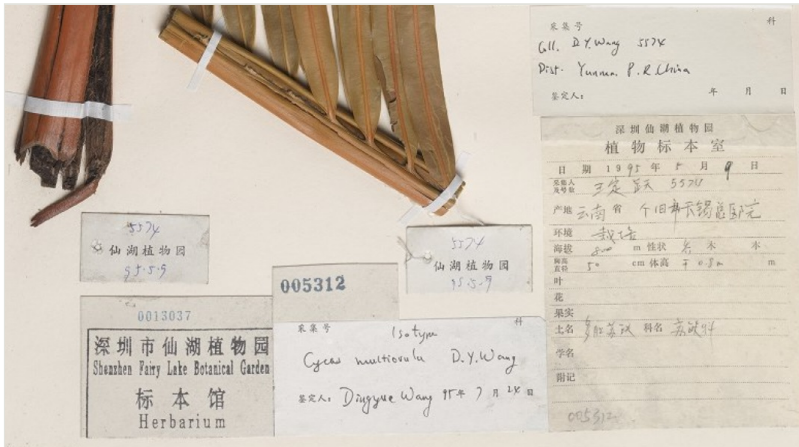 采集号 科
Coll. D.Y. Wang 5574
Dist. Yunnan P.R. China
鉴定人: 年 月 日
深圳仙湖植物园
植物标本室
日期 1995年 5月 9日
采集人及号数 王定跃 5574
产地 云南省 个旧市云锡总医院
环境 栽培
海拔 m 性状 木 本
胸高直径 50 cm 体高 干 0.8m m
叶
花
果实
土名 多胚苏铁 科名 苏铁科
学名
附记
005312
5574
仙湖植物园
95.5.9
5574
仙湖植物园
95.5.9
0013037
深圳市仙湖植物园
Shenzhen Fairy Lake Botanical Garden
标本馆
Herbarium
005312
采集号 Isotype 科
Cycas multiovula D.Y. Wang
鉴定人: Dingyue Wang 95年 7月 24日